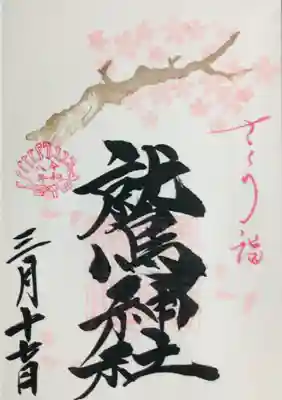 さくら詣
鷲神社
三月十七日